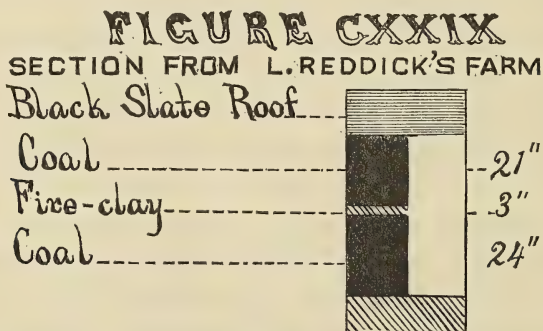 FIGURE CXXIX
SECTION FROM L. REDDICK'S FARM
Black Slate Roof
Coal 21"
Fire-clay 3"
Coal 24"